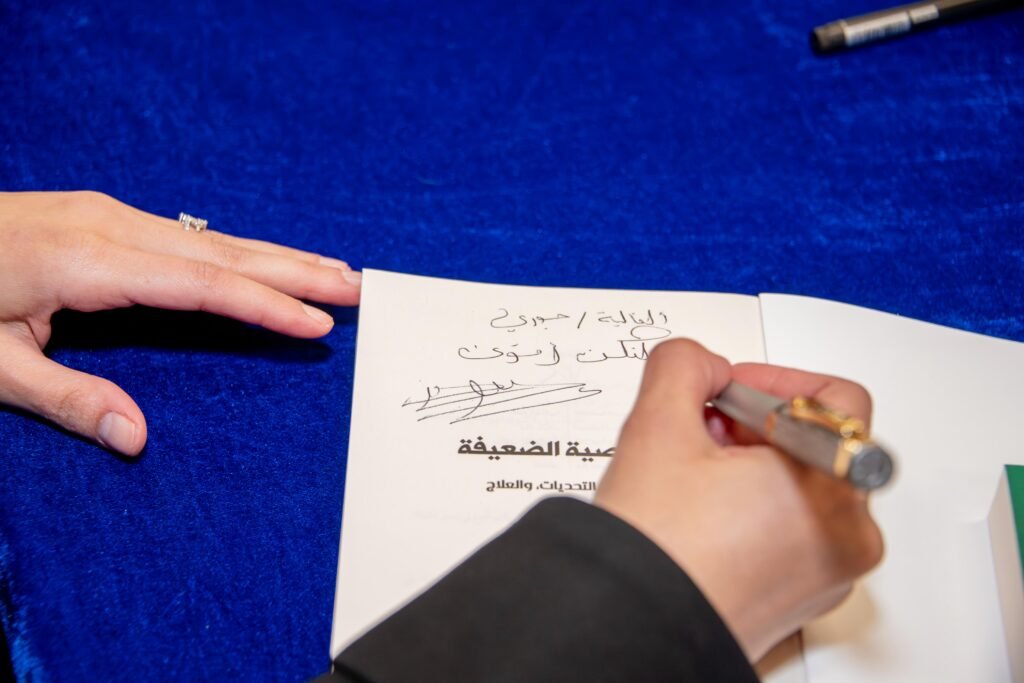 الغالية / جوري
لنكن أقوى
صية الضعيفة
التحديات، والعلاج